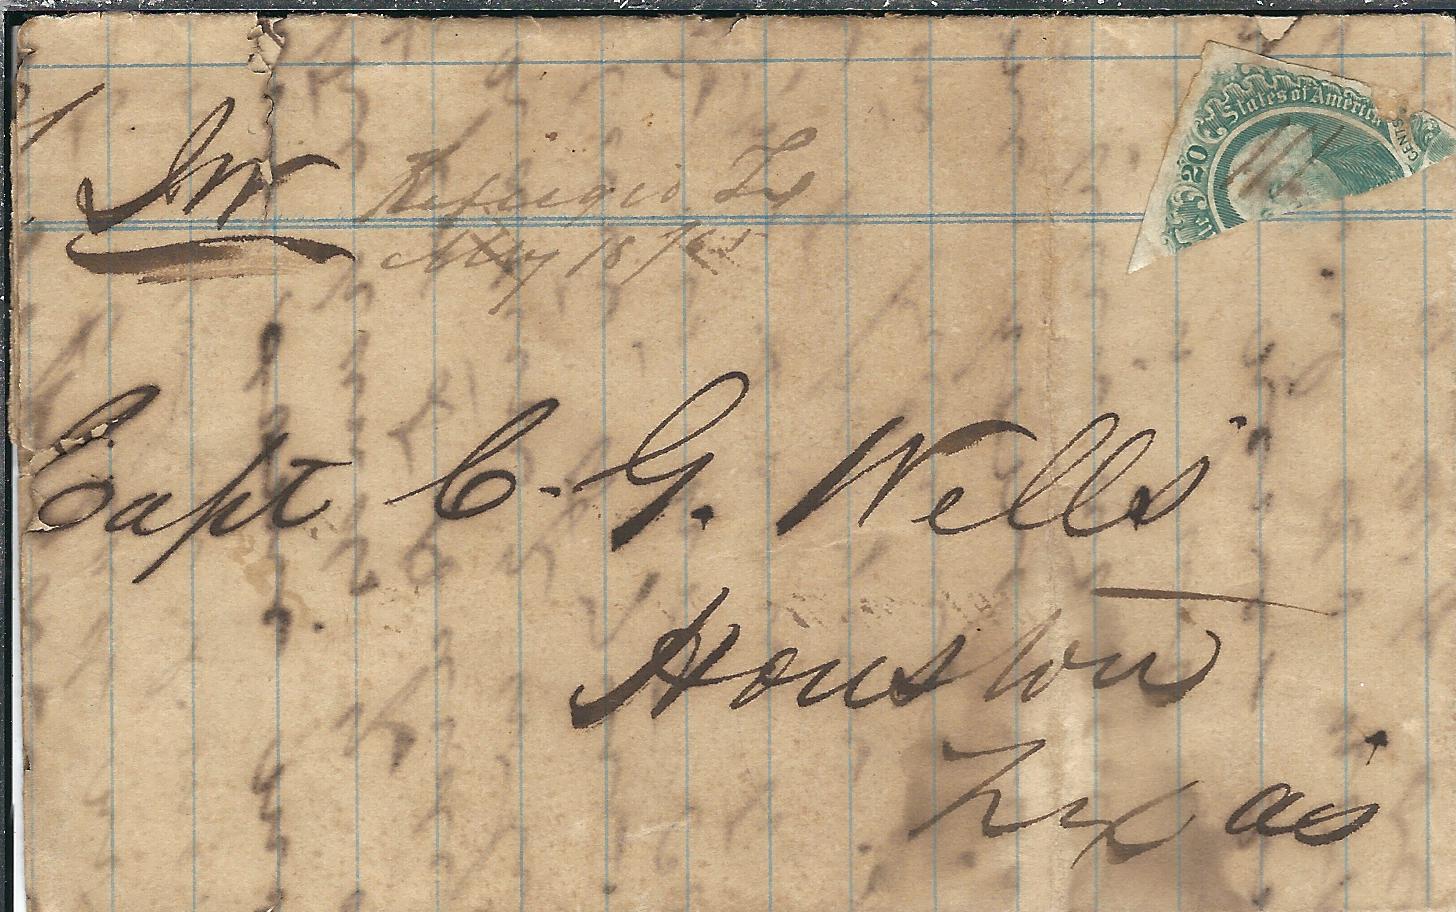 Refugio, Tx
May 18/65
20
States of America
CENTS
Capt C. G. Wells
Houston
Texas